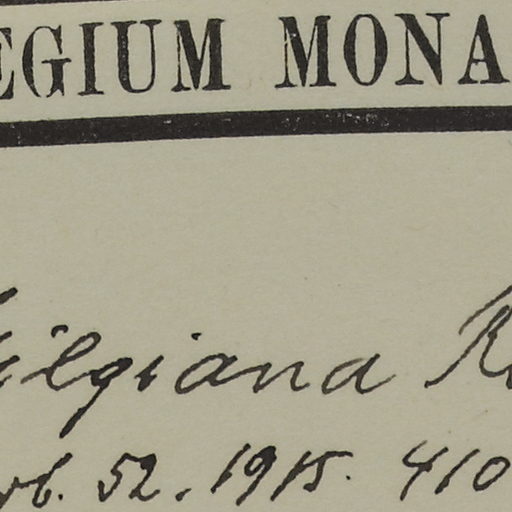 EGIUM MONA
ilgiana R
rb. 52. 1915. 410